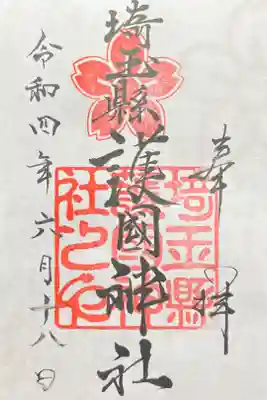 奉拝
埼玉縣護國神社
埼玉縣
護國神
社之印
令和四年六月十八日